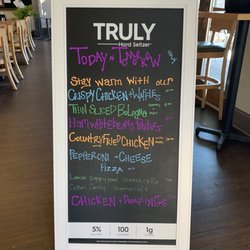 TRULY
Hard Seltzer
TODAY + TOMORROW
STAY WARM WITH OUR
CRISPY CHICKEN + WAFFLES
THIN SLICED BOLOGNA
HAM WHITE BEANS POTATOES
COUNTRY FRIED CHICKEN
PEPPERONI + CHEESE
PIZZA
CHICKEN + DUMPLINGS
5% 100 1g